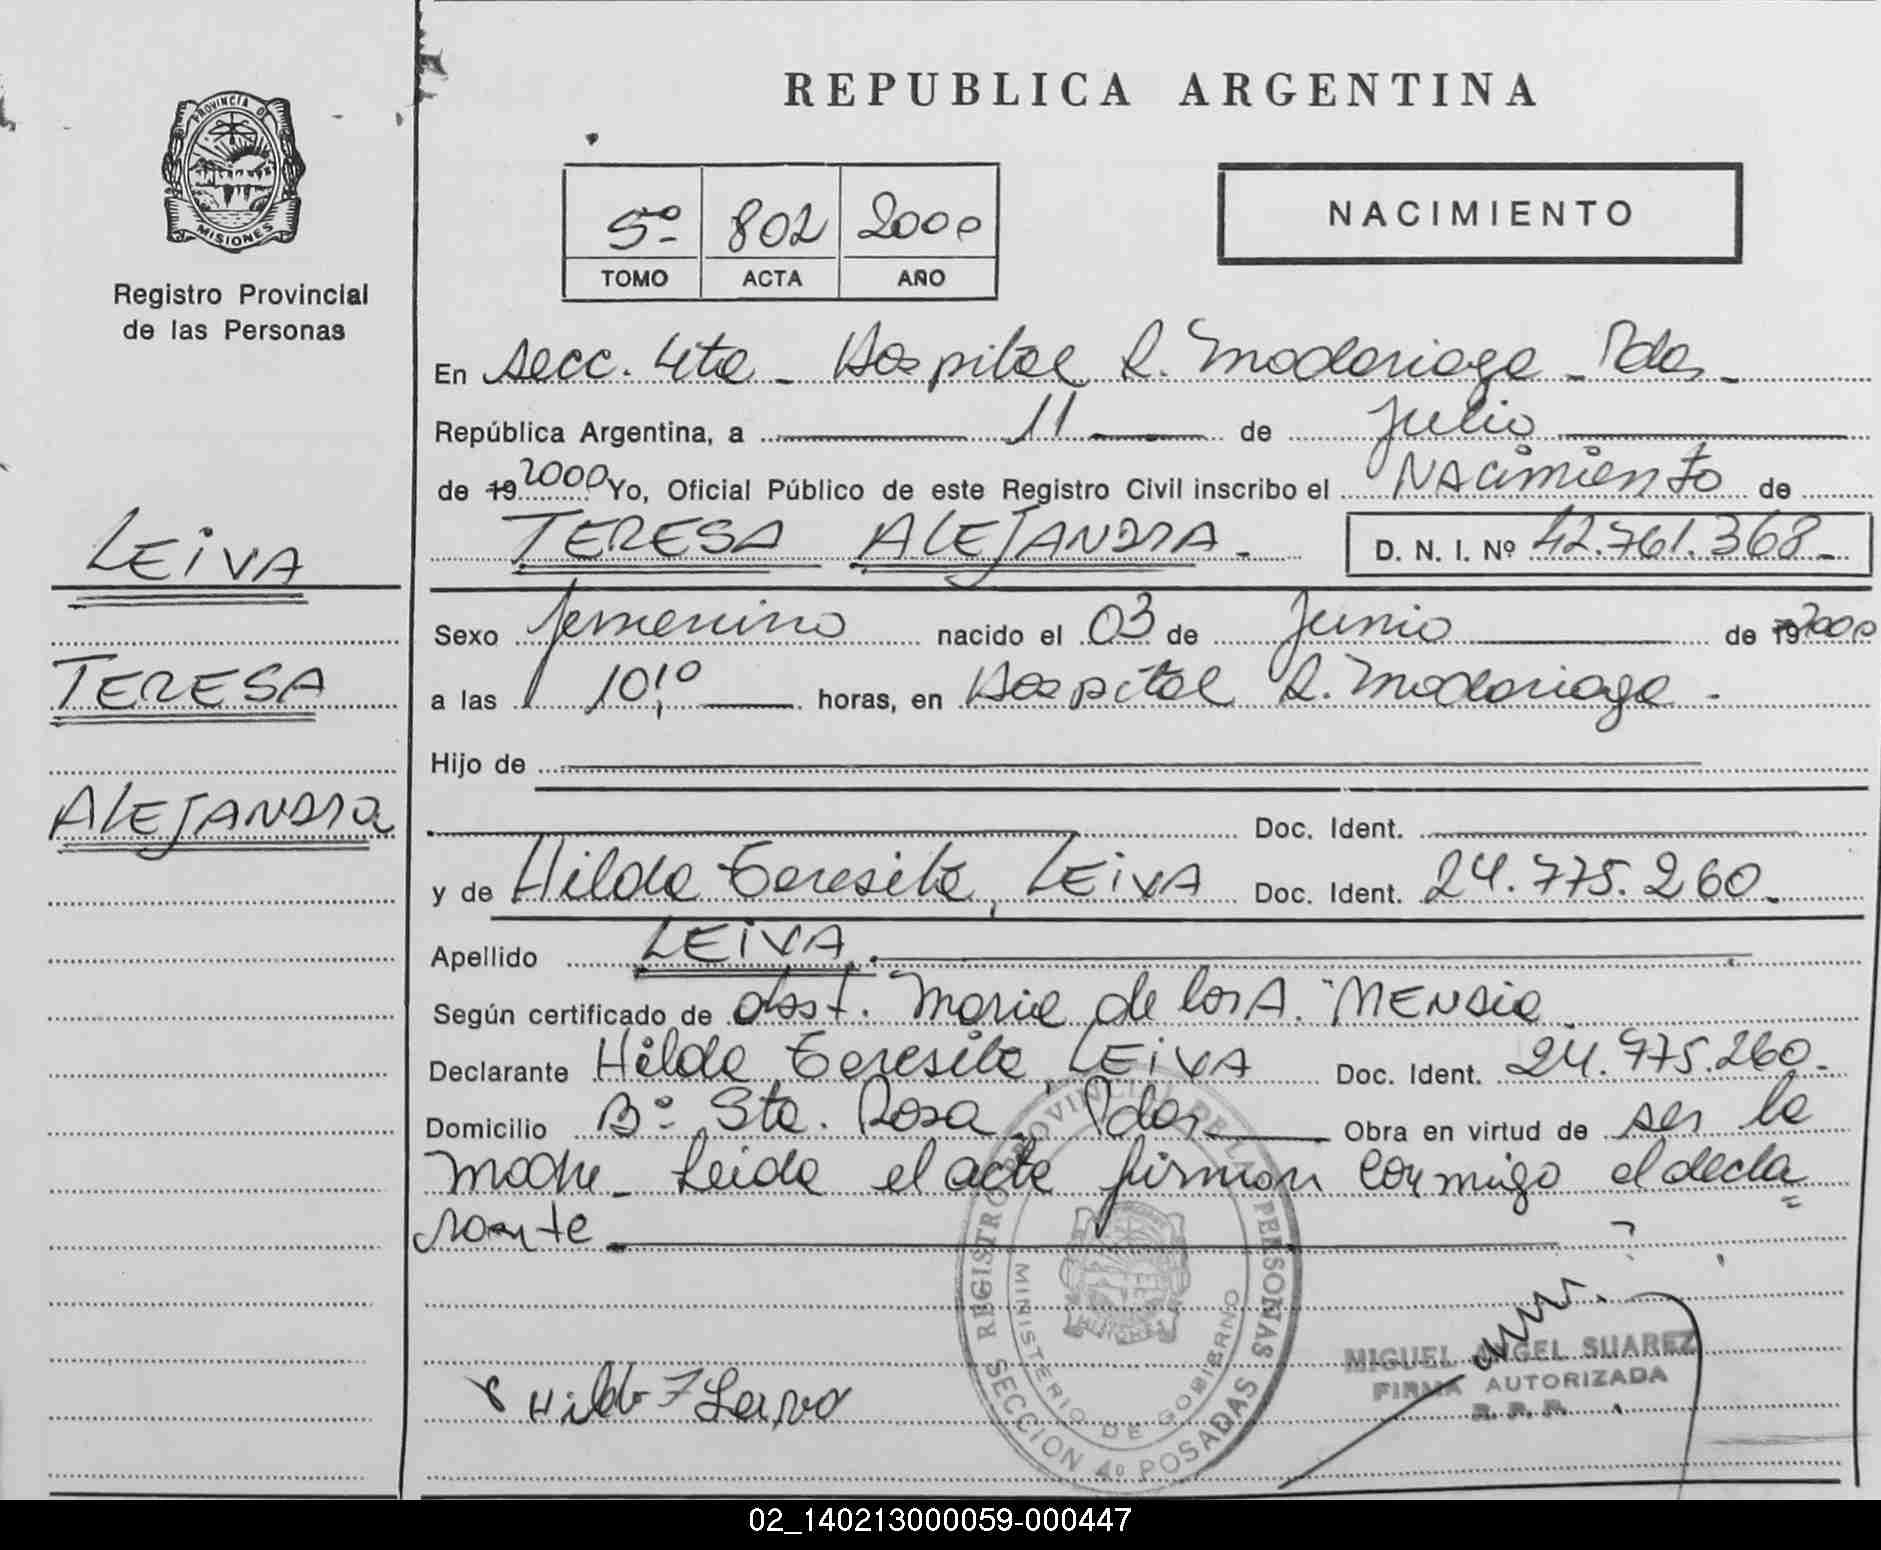 PROVINCIA D
MISIONES
Registro Provincial
de las Personas
LEIVA
TERESA
ALEJANDRA
REPUBLICA ARGENTINA
5º 802 2000
TOMO ACTA AÑO
NACIMIENTO
En Secc. 4ta - Hospital R. Madariaga - Pdas -
República Argentina, a 11 de Julio
de 19 2000 Yo, Oficial Público de este Registro Civil inscribo el Nacimiento de
TERESA ALEJANDRA - D. N. I. Nº 42.761.368 -
Sexo femenino nacido el 03 de Junio de 19 2000
a las 10,10 horas, en Hospital R. Madariaga -
Hijo de
Doc. Ident.
y de Hilda Teresita, LEIVA Doc. Ident. 24.775.260 -
Apellido LEIVA.
Según certificado de obst. Maria de los A. MENDIE
Declarante Hilda Teresita, LEIVA Doc. Ident. 24.775.260 -
Domicilio Bº Sta. Rosa - Pdas Obra en virtud de ser la
madre - Leida el acta firman conmigo el decla
rante
REGISTRO PROVINCIAL DE LAS PERSONAS
MINISTERIO DE GOBIERNO
SECCION 4º POSADAS
MIGUEL ANGEL SUAREZ
FIRMA AUTORIZADA
R. P. P.
Hilda T Leiva
02_140213000059-000447